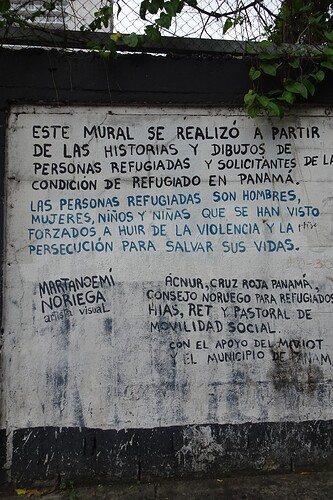 ESTE MURAL SE REALIZÓ A PARTIR
DE LAS HISTORIAS Y DIBUJOS DE
PERSONAS REFUGIADAS Y SOLICITANTES DE LA
CONDICIÓN DE REFUGIADO EN PANAMÁ.
LAS PERSONAS REFUGIADAS SON HOMBRES,
MUJERES, NIÑOS Y NIÑAS QUE SE HAN VISTO
FORZADOS A HUIR DE LA VIOLENCIA Y LA
PERSECUCIÓN PARA SALVAR SUS VIDAS.
MARTANOEMÍ
NORIEGA
artista visual
ACNUR, CRUZ ROJA PANAMÁ,
CONSEJO NORUEGO PARA REFUGIADOS
HIAS, RET Y PASTORAL DE
MOVILIDAD SOCIAL.
CON EL APOYO DEL MIVIOT
Y EL MUNICIPIO DE PANAM